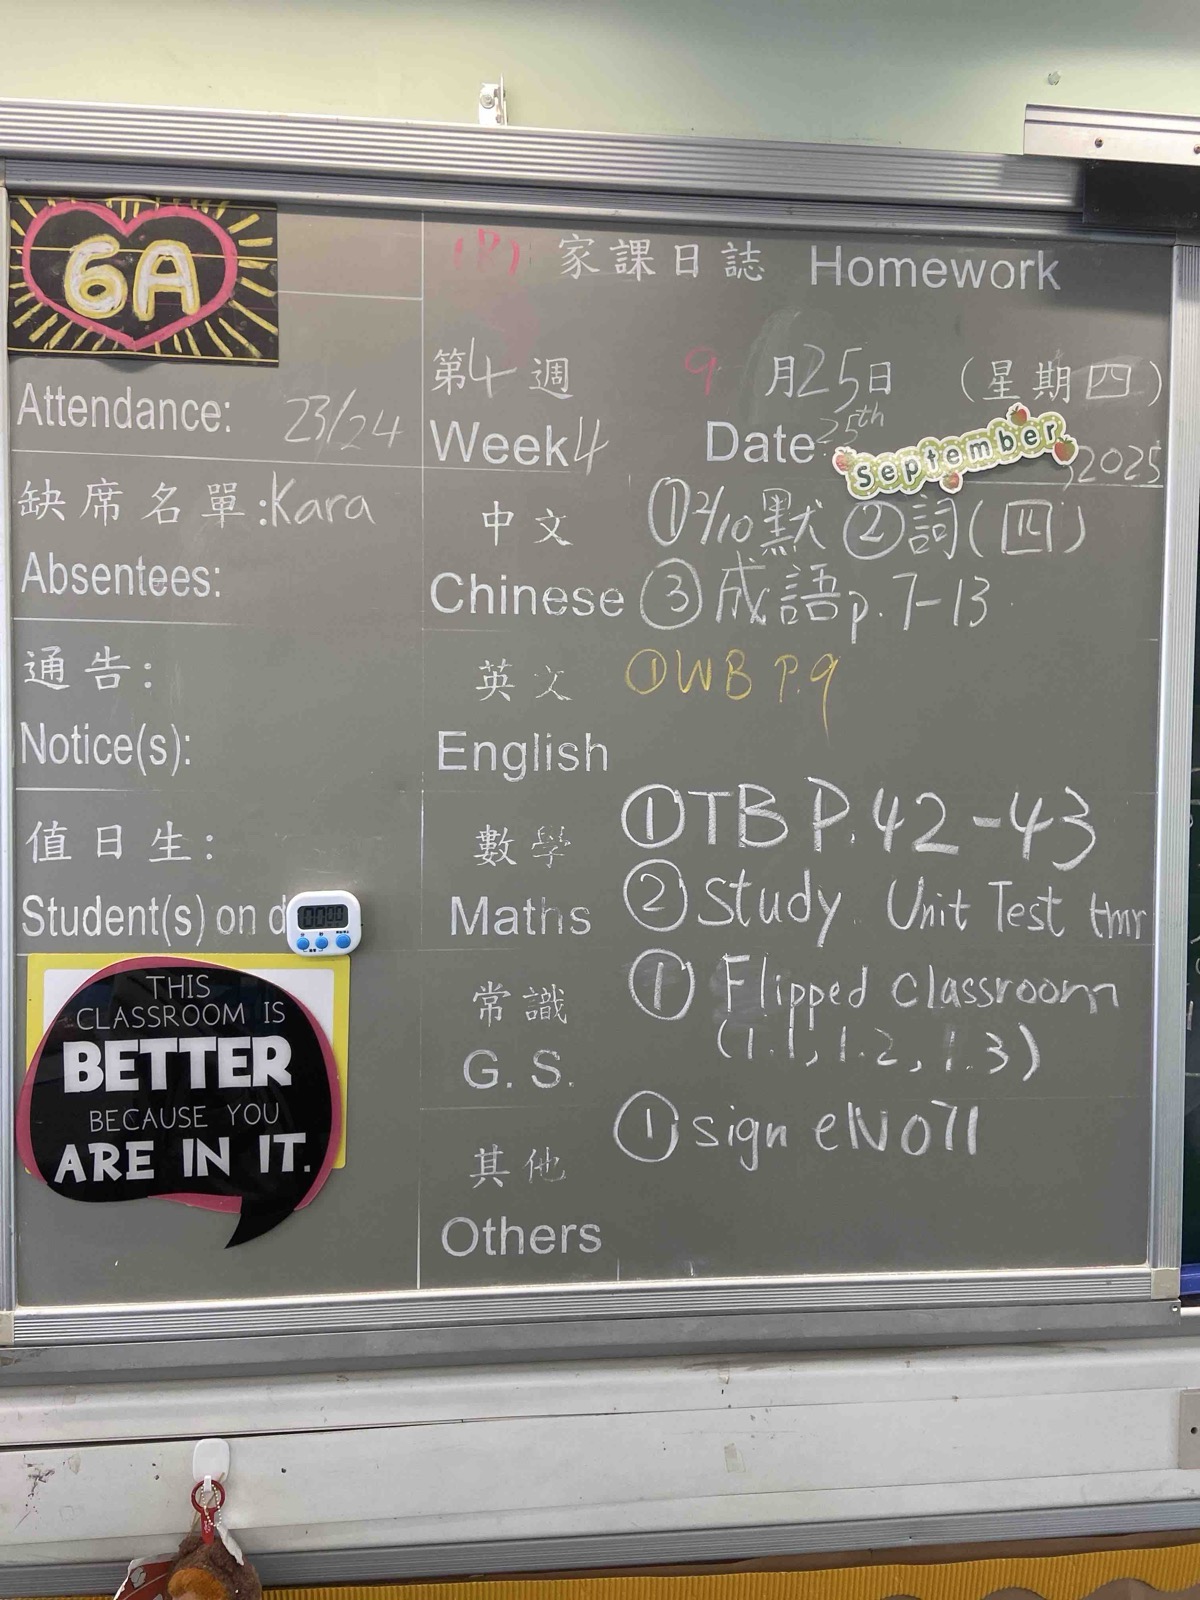 6A
Attendance: 23/24
缺席名單:Kara
Absentees:
通告:
Notice(s):
值日生:
Student(s) on d
00:00
THIS
CLASSROOM IS
BETTER
BECAUSE YOU
ARE IN IT.
家課日誌 Homework
第4週 9月25日 (星期四)
Week 4 Date 25th September, 2025
中文 ①2/10默 ②詞(四)
Chinese ③成語p.7-13
英文 ①WB P.9
English
數學 ①TB P.42-43
Maths ②Study Unit Test tmr
常識 ① Flipped classroom
G. S. (1.1, 1.2, 1.3)
其他 ① sign eN071
Others